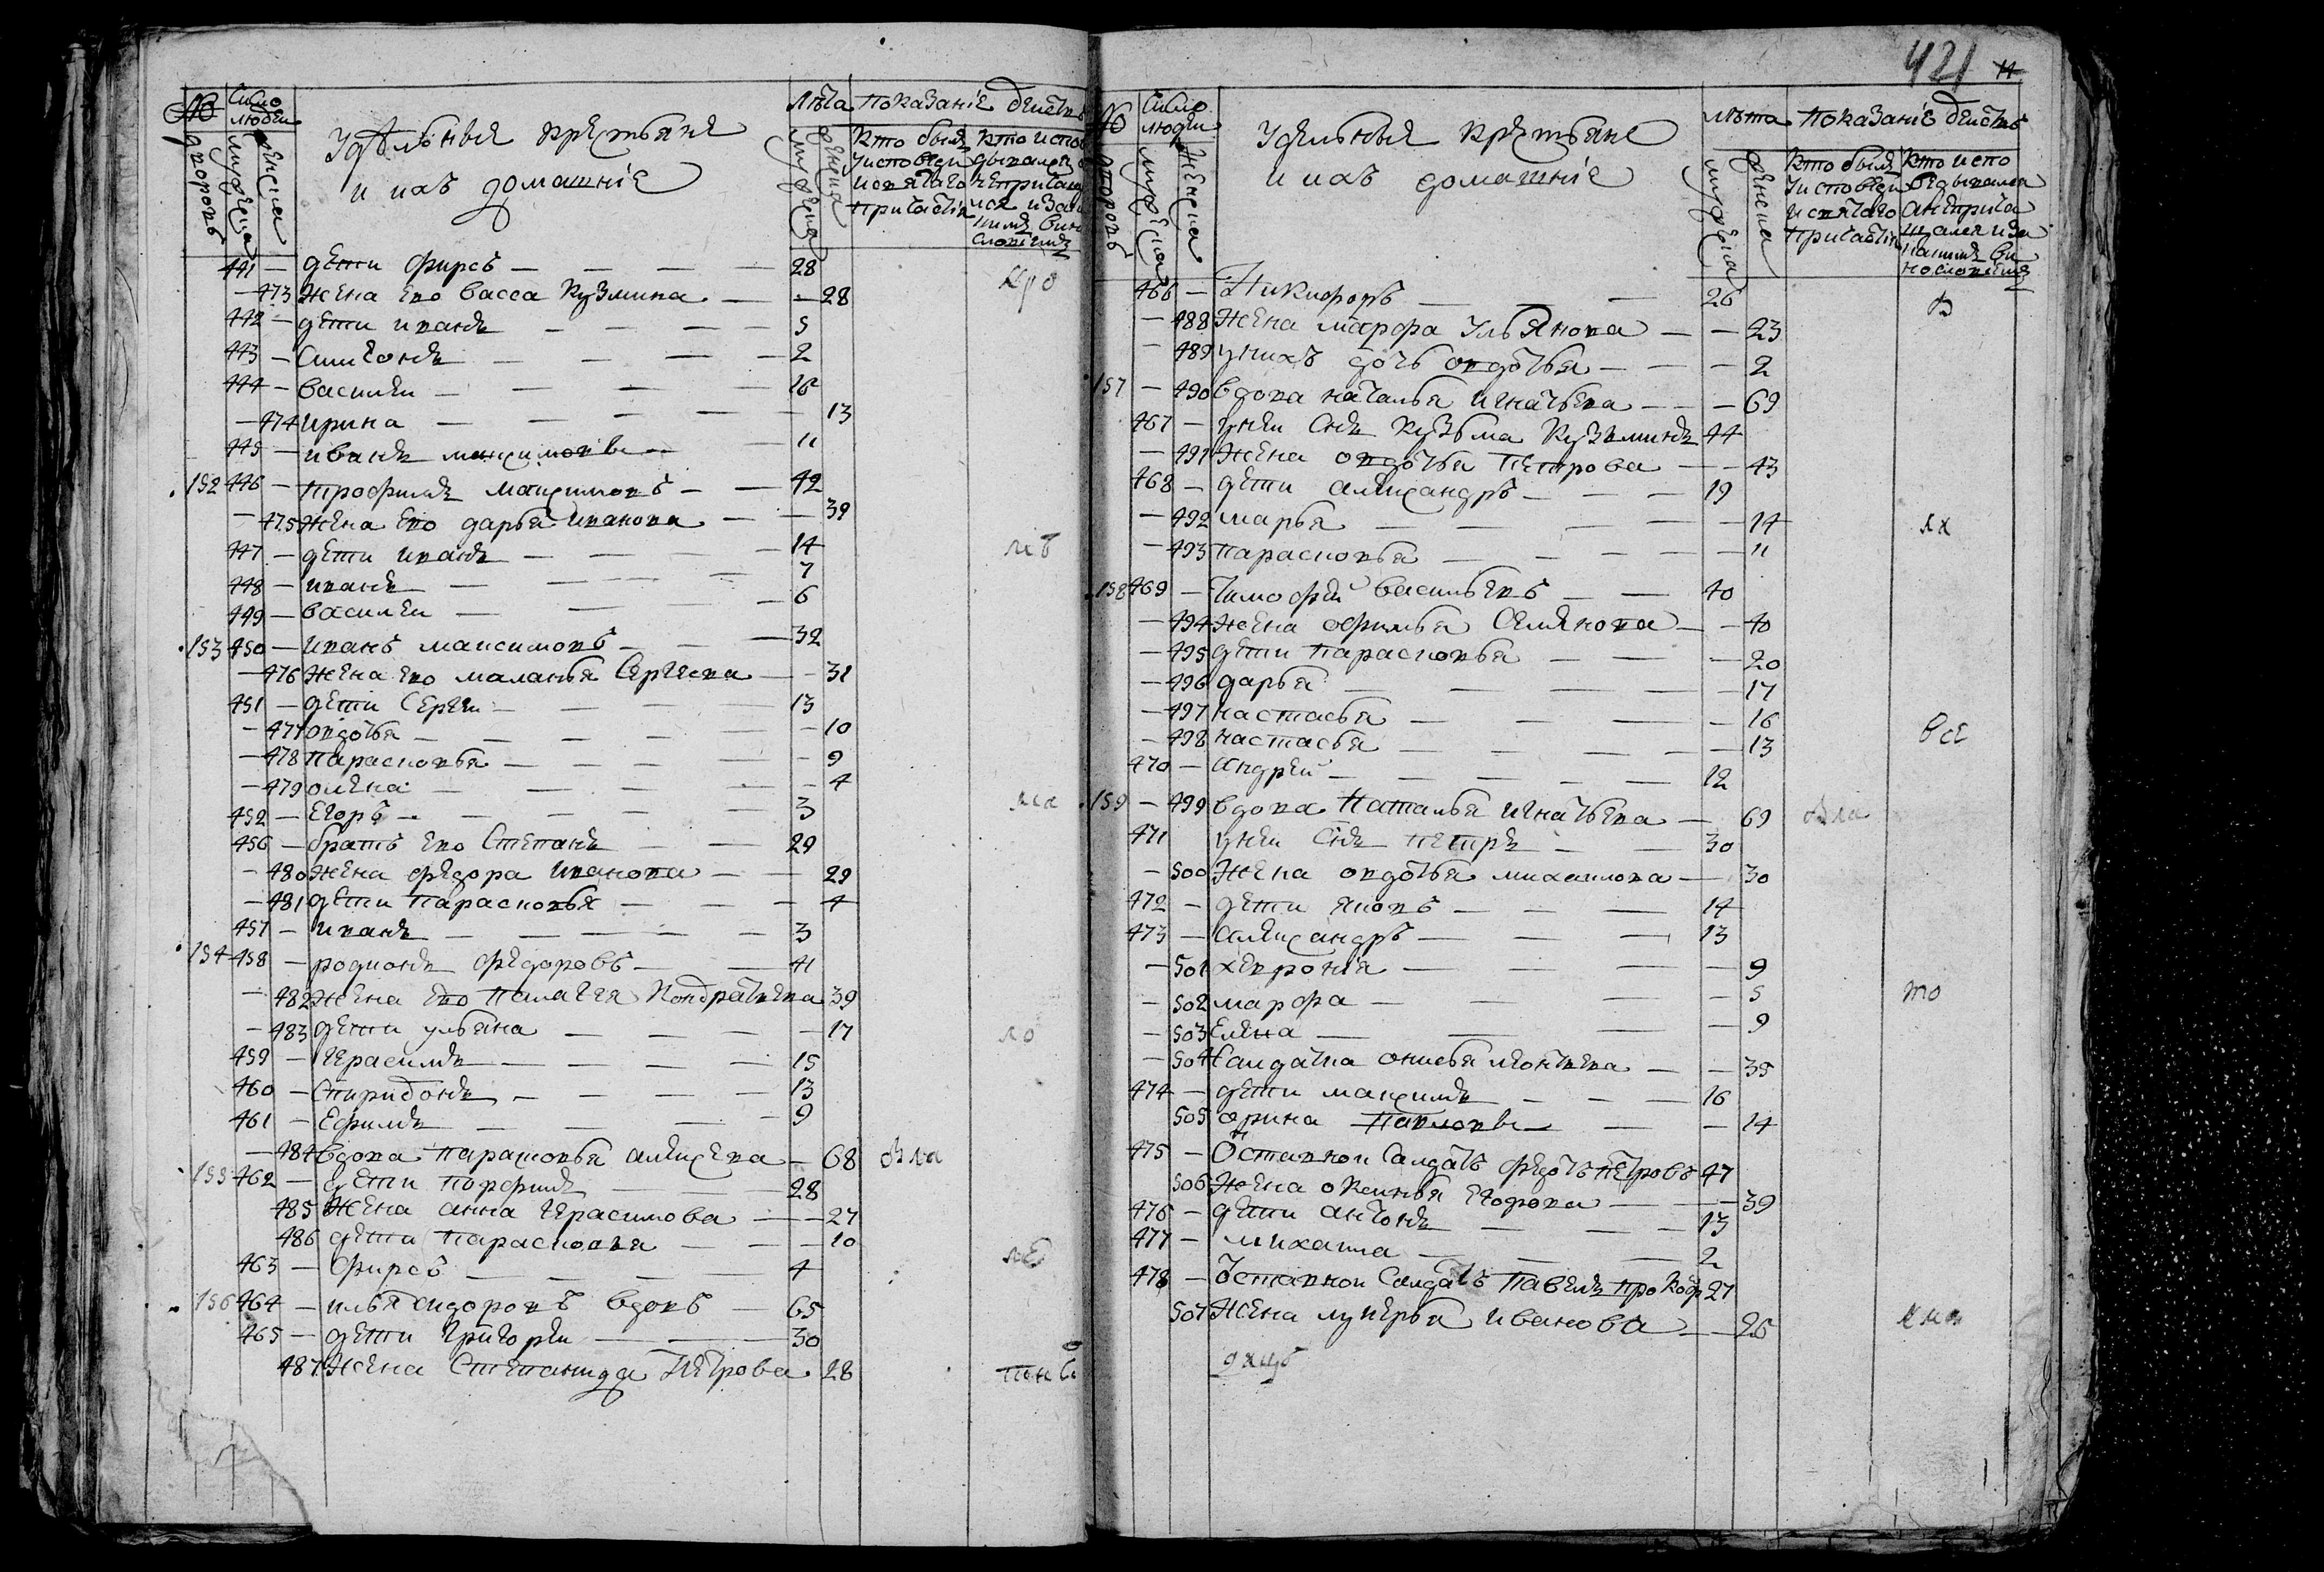 № дворовъ
Число людеи
мужеска
женска
Удѣльные крестьяне
и ихъ домашнїе
Лѣта
мужеска
женска
показанїе деиств
кто былъ
у исповеди
и святаго
причастїя
441 — дети фирсъ — 28
— 473 жена ево васса кузмина — 28
442 — дети иванъ — 5
443 — симионъ — 2
444 — василеи — 16
— 474 ирина — 13
445 — иванъ максимовъ — 11
152 446 — трофимъ максимовъ — 42
— 475 жена ево дарья иванова — 39
447 — дети иванъ — 14
448 — иванъ — 7
449 — василеи — 6
153 450 — иванъ максимовъ — 32
— 476 жена ево маланья сергеева — 31
451 — дети сергеи — 13
— 477 овдотья — 10
— 478 парасковья — 9
— 479 олена — 4
452 — егоръ — 3
456 — братъ ево степанъ — 29
— 480 жена федора иванова — 29
— 481 дети парасковья — 4
457 — иванъ — 3
154 458 — родионъ федоровъ — 41
— 482 жена ево палагея кондратьева 39
— 483 дети ульяна — 17
459 — герасимъ — 15
460 — спиридонъ — 13
461 — ефимъ — 9
— 484 вдова парасковья алексева — 68
155 462 — дети порфилъ — 28
485 жена анна герасимова — 27
486 дети парасковья — 10
463 — фирсъ — 4
156 464 — илья сидоровъ вдовъ — 65
465 — дети григореи — 30
487 жена степанида петрова 28
421 11
№ дворовъ
Число людеи
мужеска
женска
Удельные крестьяне
и ихъ домашнїе
лѣта
мужеска
женска
показанїе деиств
кто былъ
у исповеди
и святаго
причастїя
кто испо
ведывался
а неприча
щался и за
какимъ ви
нословиемъ
466 — Никифоръ — 26
— 488 жена марфа ульянова — 23
— 489 у нихъ дочь овдотья — 2
157 — 490 вдова наталья игнатьева — 69
467 — у неи снъ кузьма кузьминъ 44
— 491 жена овдотья петрова — 43
468 — дети александръ — 19
— 492 марья — 14
— 493 парасковья — 11
158 469 — тимофеи васильевъ — 40
— 494 жена офимья семенова — 40
— 495 дети парасковья — 20
— 496 дарья — 17
— 497 настасья — 16
— 498 настасья — 13
470 — андреи — 12
все
159 — 499 вдова наталья игнатьева — 69
471 у неи снъ петръ — 30
— 500 жена овдотья михаилова — 30
472 — дети яковъ — 14
473 — александръ — 13
— 501 хеврония — 9
— 502 марфа — 5
то
— 503 елена — 9
— 504 салдатка онисья леонтьева — 35
474 — дети максимъ — 16
505 орина павловы — 14
475 — отставнои салдатъ федотъ петровъ 47
506 жена оксинья егорова — 39
476 — дети антонъ — 13
477 — михаила — 2
478 — отставнои салдатъ павелъ прокоф 27
507 жена лукерья иванова — 25